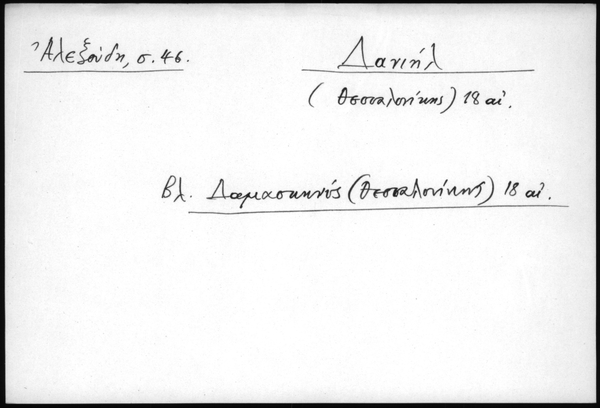 Ἀλεξούδη, σ. 46.
Δανιήλ
(Θεσσαλονίκης) 18 αἰ.
Βλ. Δαμασκηνός (Θεσσαλονίκης) 18 αἰ.